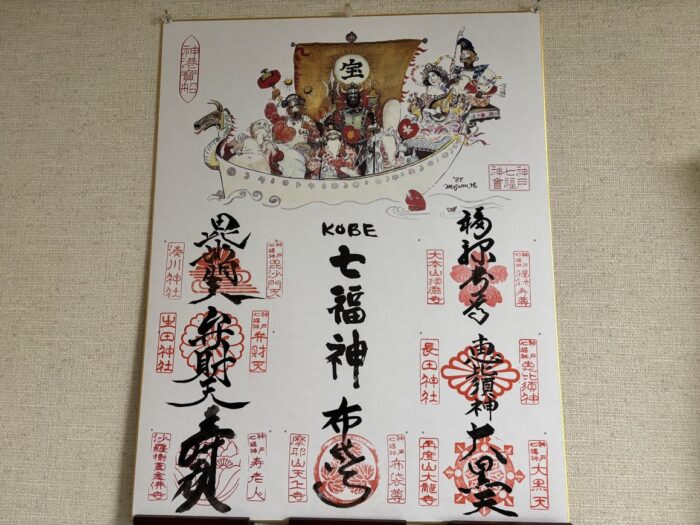 神港寳船
宝
神戸七福神會
'87
KOBE
七福神
福禄寿尊
神戸七福神
大本山須磨寺
恵比須神
神戸七福神 恵比須神
長田神社
大黒天
神戸七福神 大黒天
再度山大龍寺
布袋尊
神戸七福神 布袋尊
摩耶山天上寺
毘沙門天
神戸七福神 毘沙門天
湊川神社
弁財天
神戸七福神 弁財天
生田神社
寿老人
神戸七福神 寿老人
念佛寺